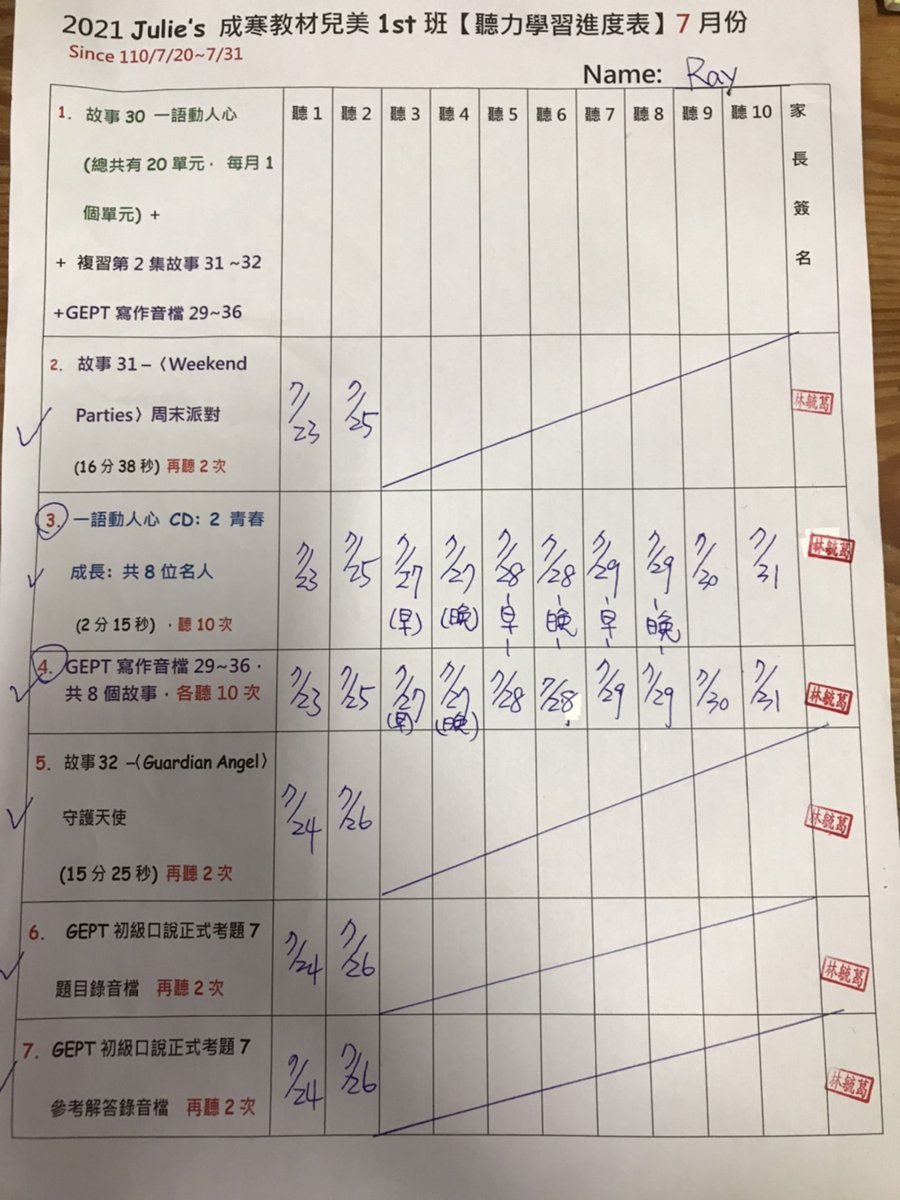 2021 Julie's 成寒教材兒美 1st 班【聽力學習進度表】7 月份
Since 110/7/20~7/31
Name: Ray
1. 故事 30 一語動人心
(總共有 20 單元. 每月 1
個單元) +
+ 複習第 2 集故事 31 ~32
+GEPT 寫作音檔 29~36
聽 1 聽 2 聽 3 聽 4 聽 5 聽 6 聽 7 聽 8 聽 9 聽 10 家長簽名
2. 故事 31 –〈Weekend
Parties〉周末派對
(16 分 38 秒) 再聽 2 次
7/23 7/25 林毓萬
3. 一語動人心 CD: 2 青春
成長: 共 8 位名人
(2 分 15 秒) . 聽 10 次
7/23 7/25 7/27 7/27 7/28 7/28 7/29 7/29 7/30 7/31 林毓萬
(早) (晚) 早 晚 早 晚
4. GEPT 寫作音檔 29~36 .
共 8 個故事. 各聽 10 次
7/23 7/25 7/27 7/27 7/28 7/28 7/29 7/29 7/30 7/31 林毓萬
(早) (晚)
5. 故事 32 –〈Guardian Angel〉
守護天使
(15 分 25 秒) 再聽 2 次
7/24 7/26 林毓萬
6. GEPT 初級口說正式考題 7
題目錄音檔 再聽 2 次
7/24 7/26 林毓萬
7. GEPT 初級口說正式考題 7
參考解答錄音檔 再聽 2 次
7/24 7/26 林毓萬